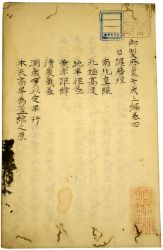 御製曆象考成上編卷四
日躔曆理
南北真線
北極高度
地半徑差
黃赤距緯
清蒙氣差
測歲實以定平行
本天高卑為盈縮之原